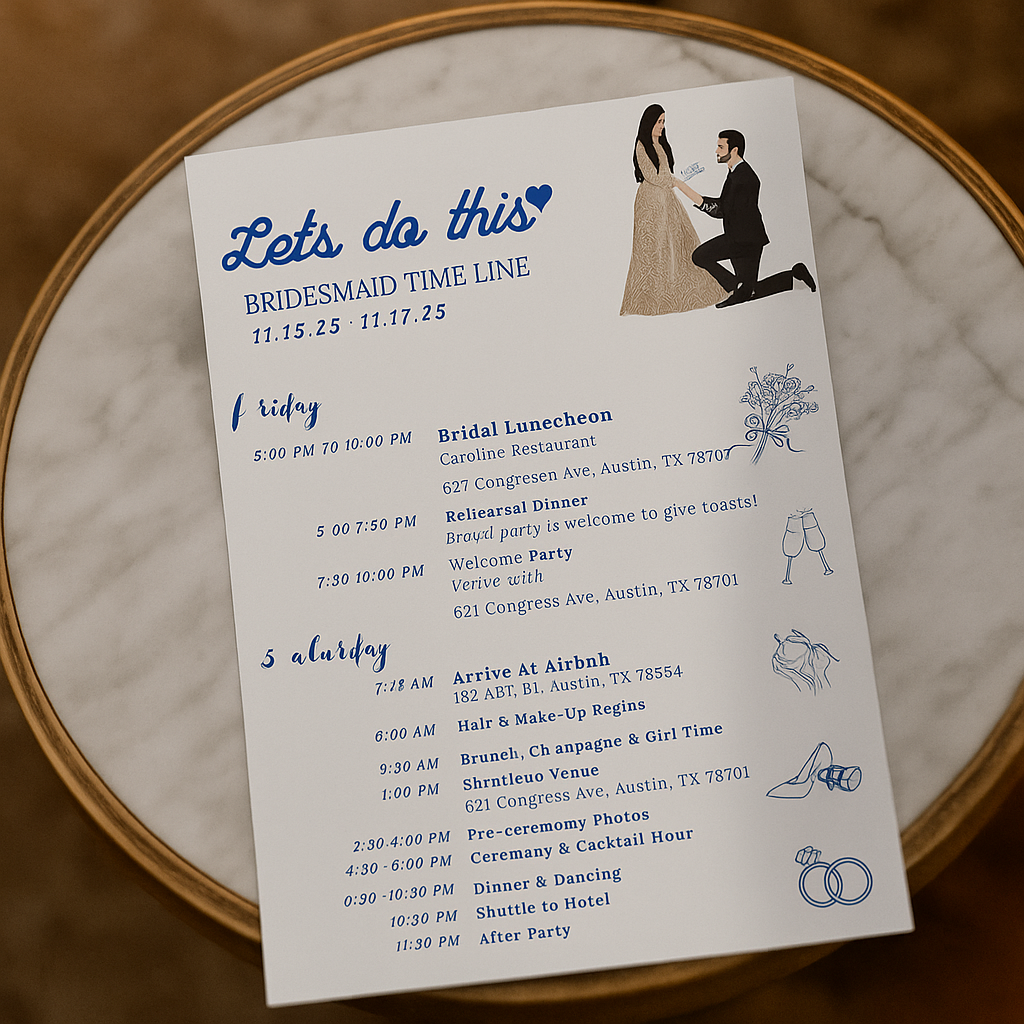 Lets do this
BRIDESMAID TIME LINE
11.15.25 · 11.17.25
friday
5:00 PM 70 10:00 PM
Bridal Lunecheon
Caroline Restaurant
627 Congresen Ave, Austin, TX 78707
5 00 7:50 PM
Reliearsal Dinner
party is welcome to give toasts!
7:30 10:00 PM
Welcome Party
Verive with
621 Congress Ave, Austin, TX 78701
5 alurday
7:18 AM
Arrive At Airbnh
182 ABT, B1, Austin, TX 78554
6:00 AM
Halr & Make-Up Regins
9:30 AM
Bruneh, Ch anpagne & Girl Time
1:00 PM
Shrntleuo Venue
621 Congress Ave, Austin, TX 78701
2:30.4:00 PM
Pre-ceremomy Photos
4:30 - 6:00 PM
Ceremany & Cacktail Hour
0:90 -10:30 PM
Dinner & Dancing
10:30 PM
Shuttle to Hotel
11:30 PM
After Party